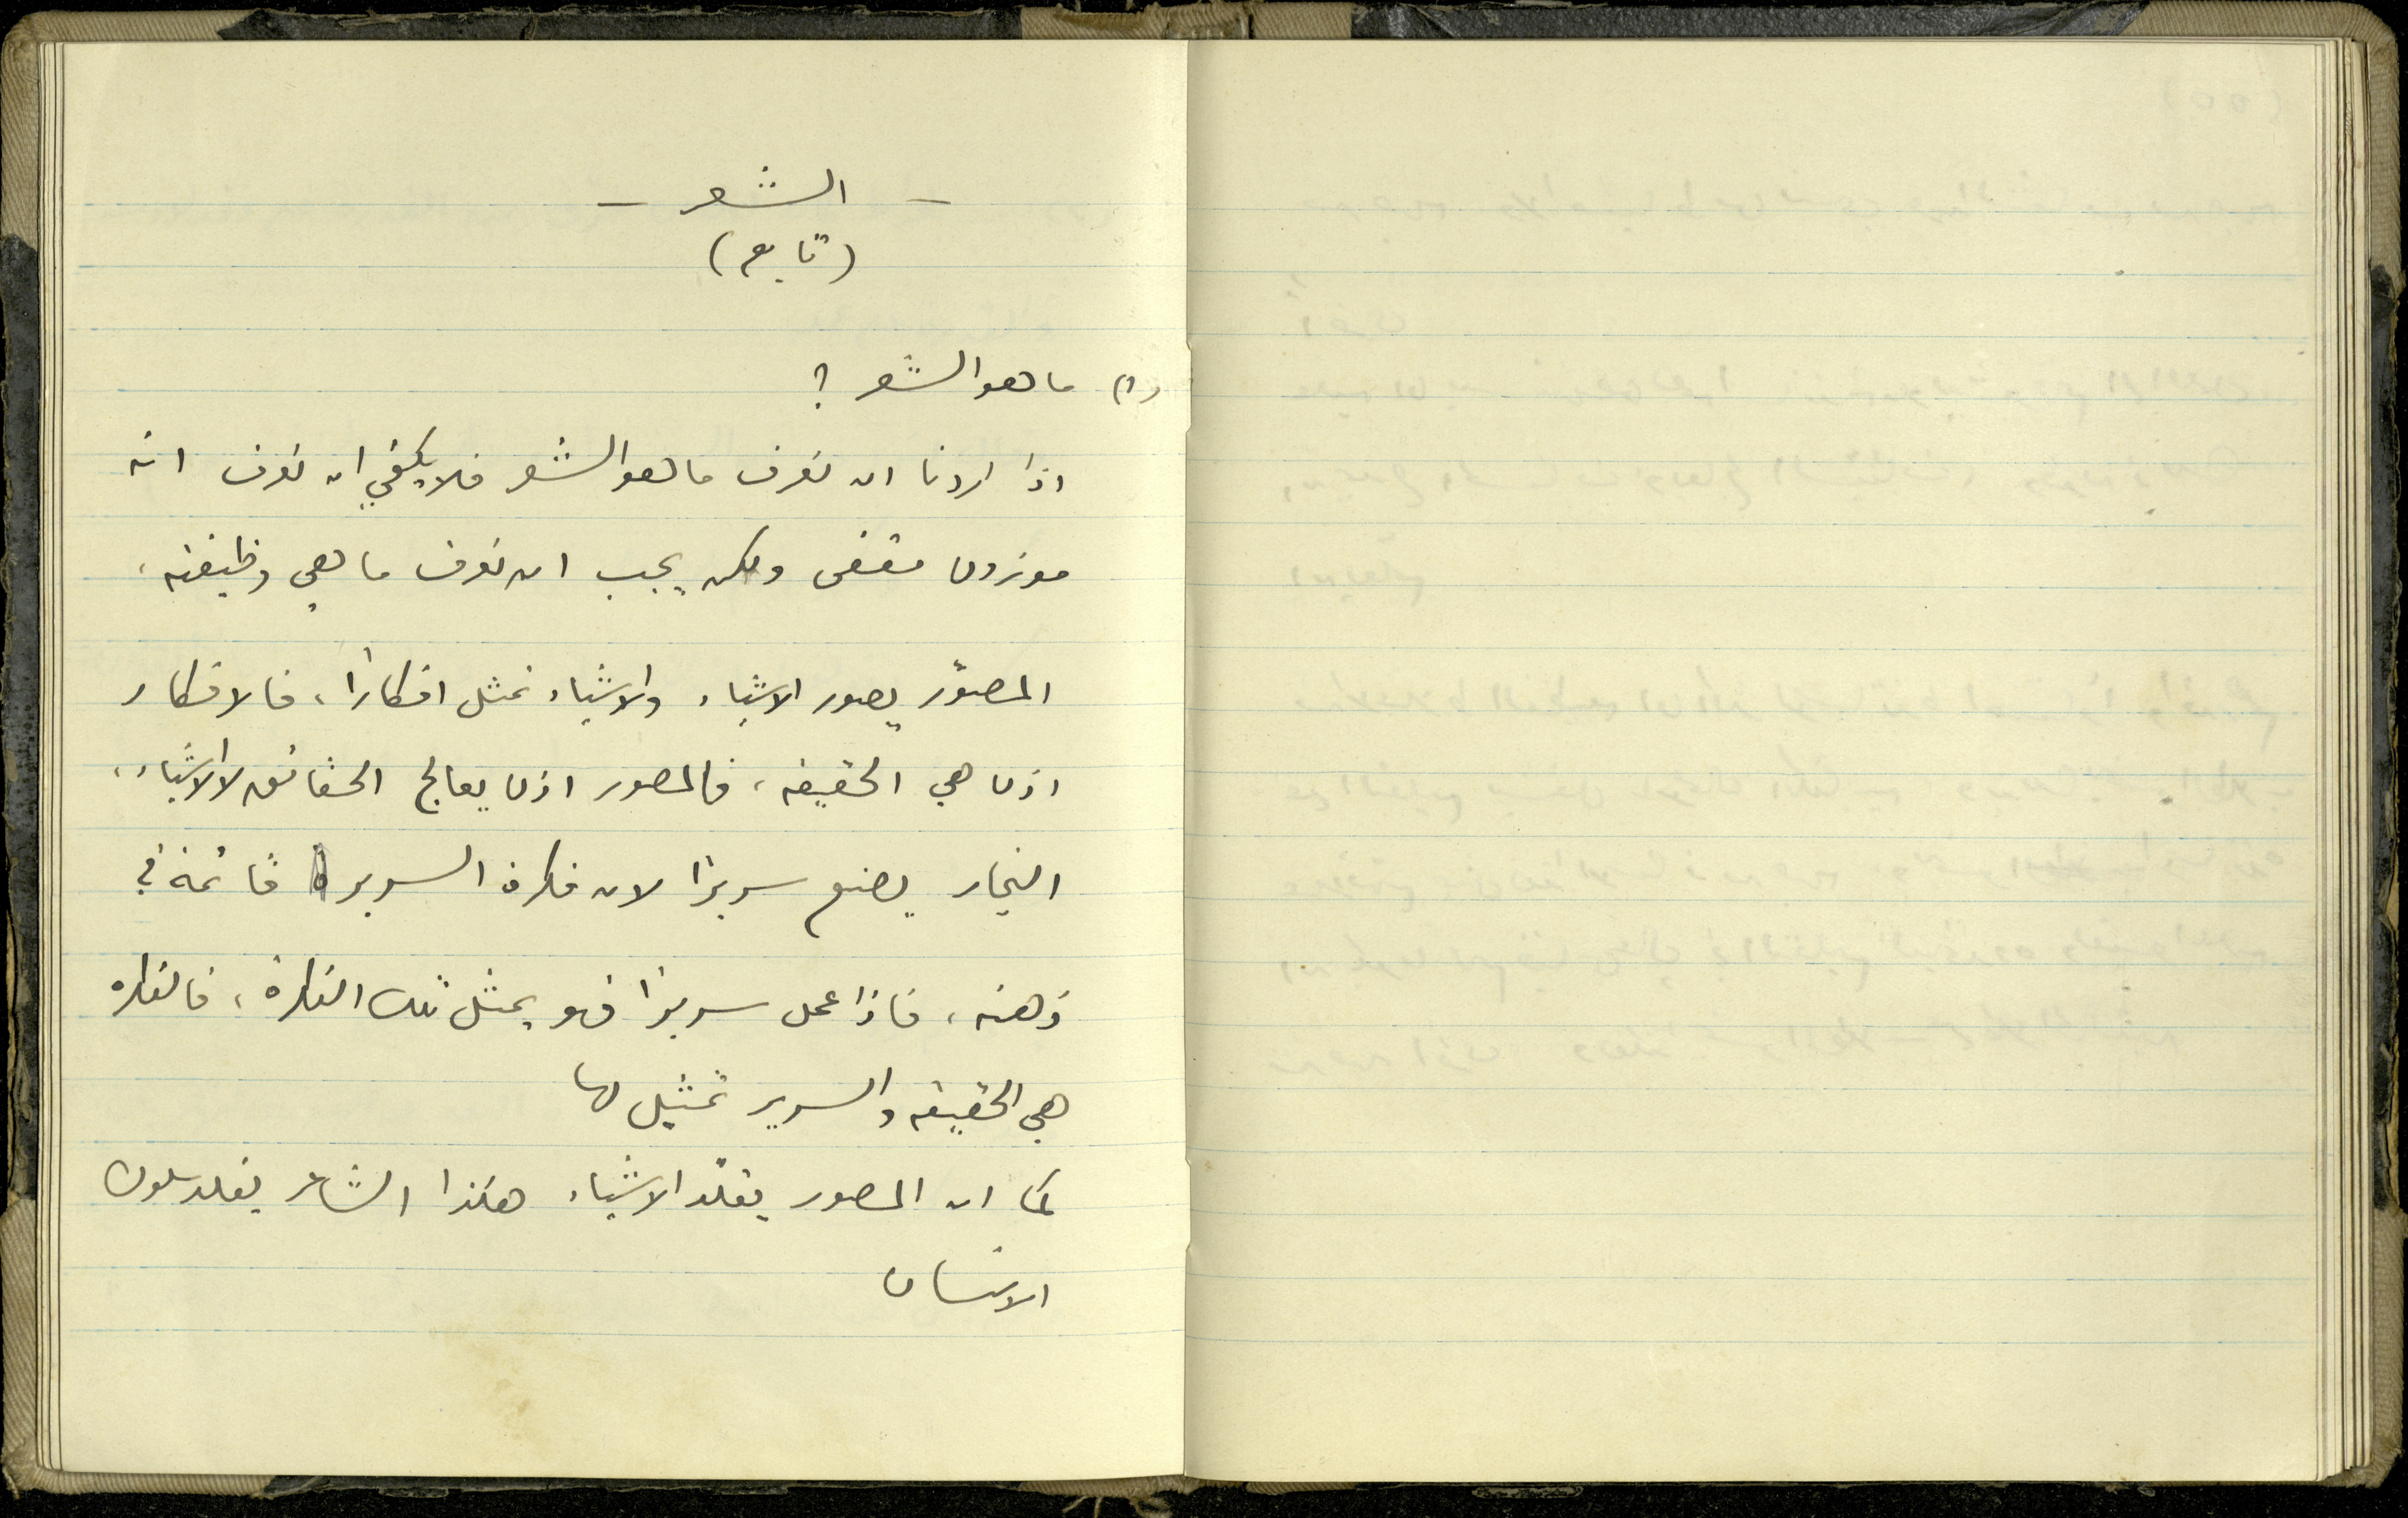 — الشعر —
(تابع)
(١) ما هو الشعر ؟
اذا اردنا ان نعرف ما هو الشعر فلا يكفي ان نعرف انه
موزون مقفى ولكن يجب ان نعرف ما هي وظيفته ،
المصوّر يصور الاشياء والاشياء تمثل افكاراً ، فالافكار
اذن هي الحقيقه ، فالمصور اذن يعالج الحقائق لا الاشياء ،
النجار يصنع سريرا لان فكرة السرير قائمة في
ذهنه ، فاذا عمل سريرا فهو يمثل تلك الفكرة ، فالفكره
هي الحقيقه والسرير تمثيل لها
كما ان المصور يقلّد الاشياء هكذا الشاعر يقلد سلوك
الانسان